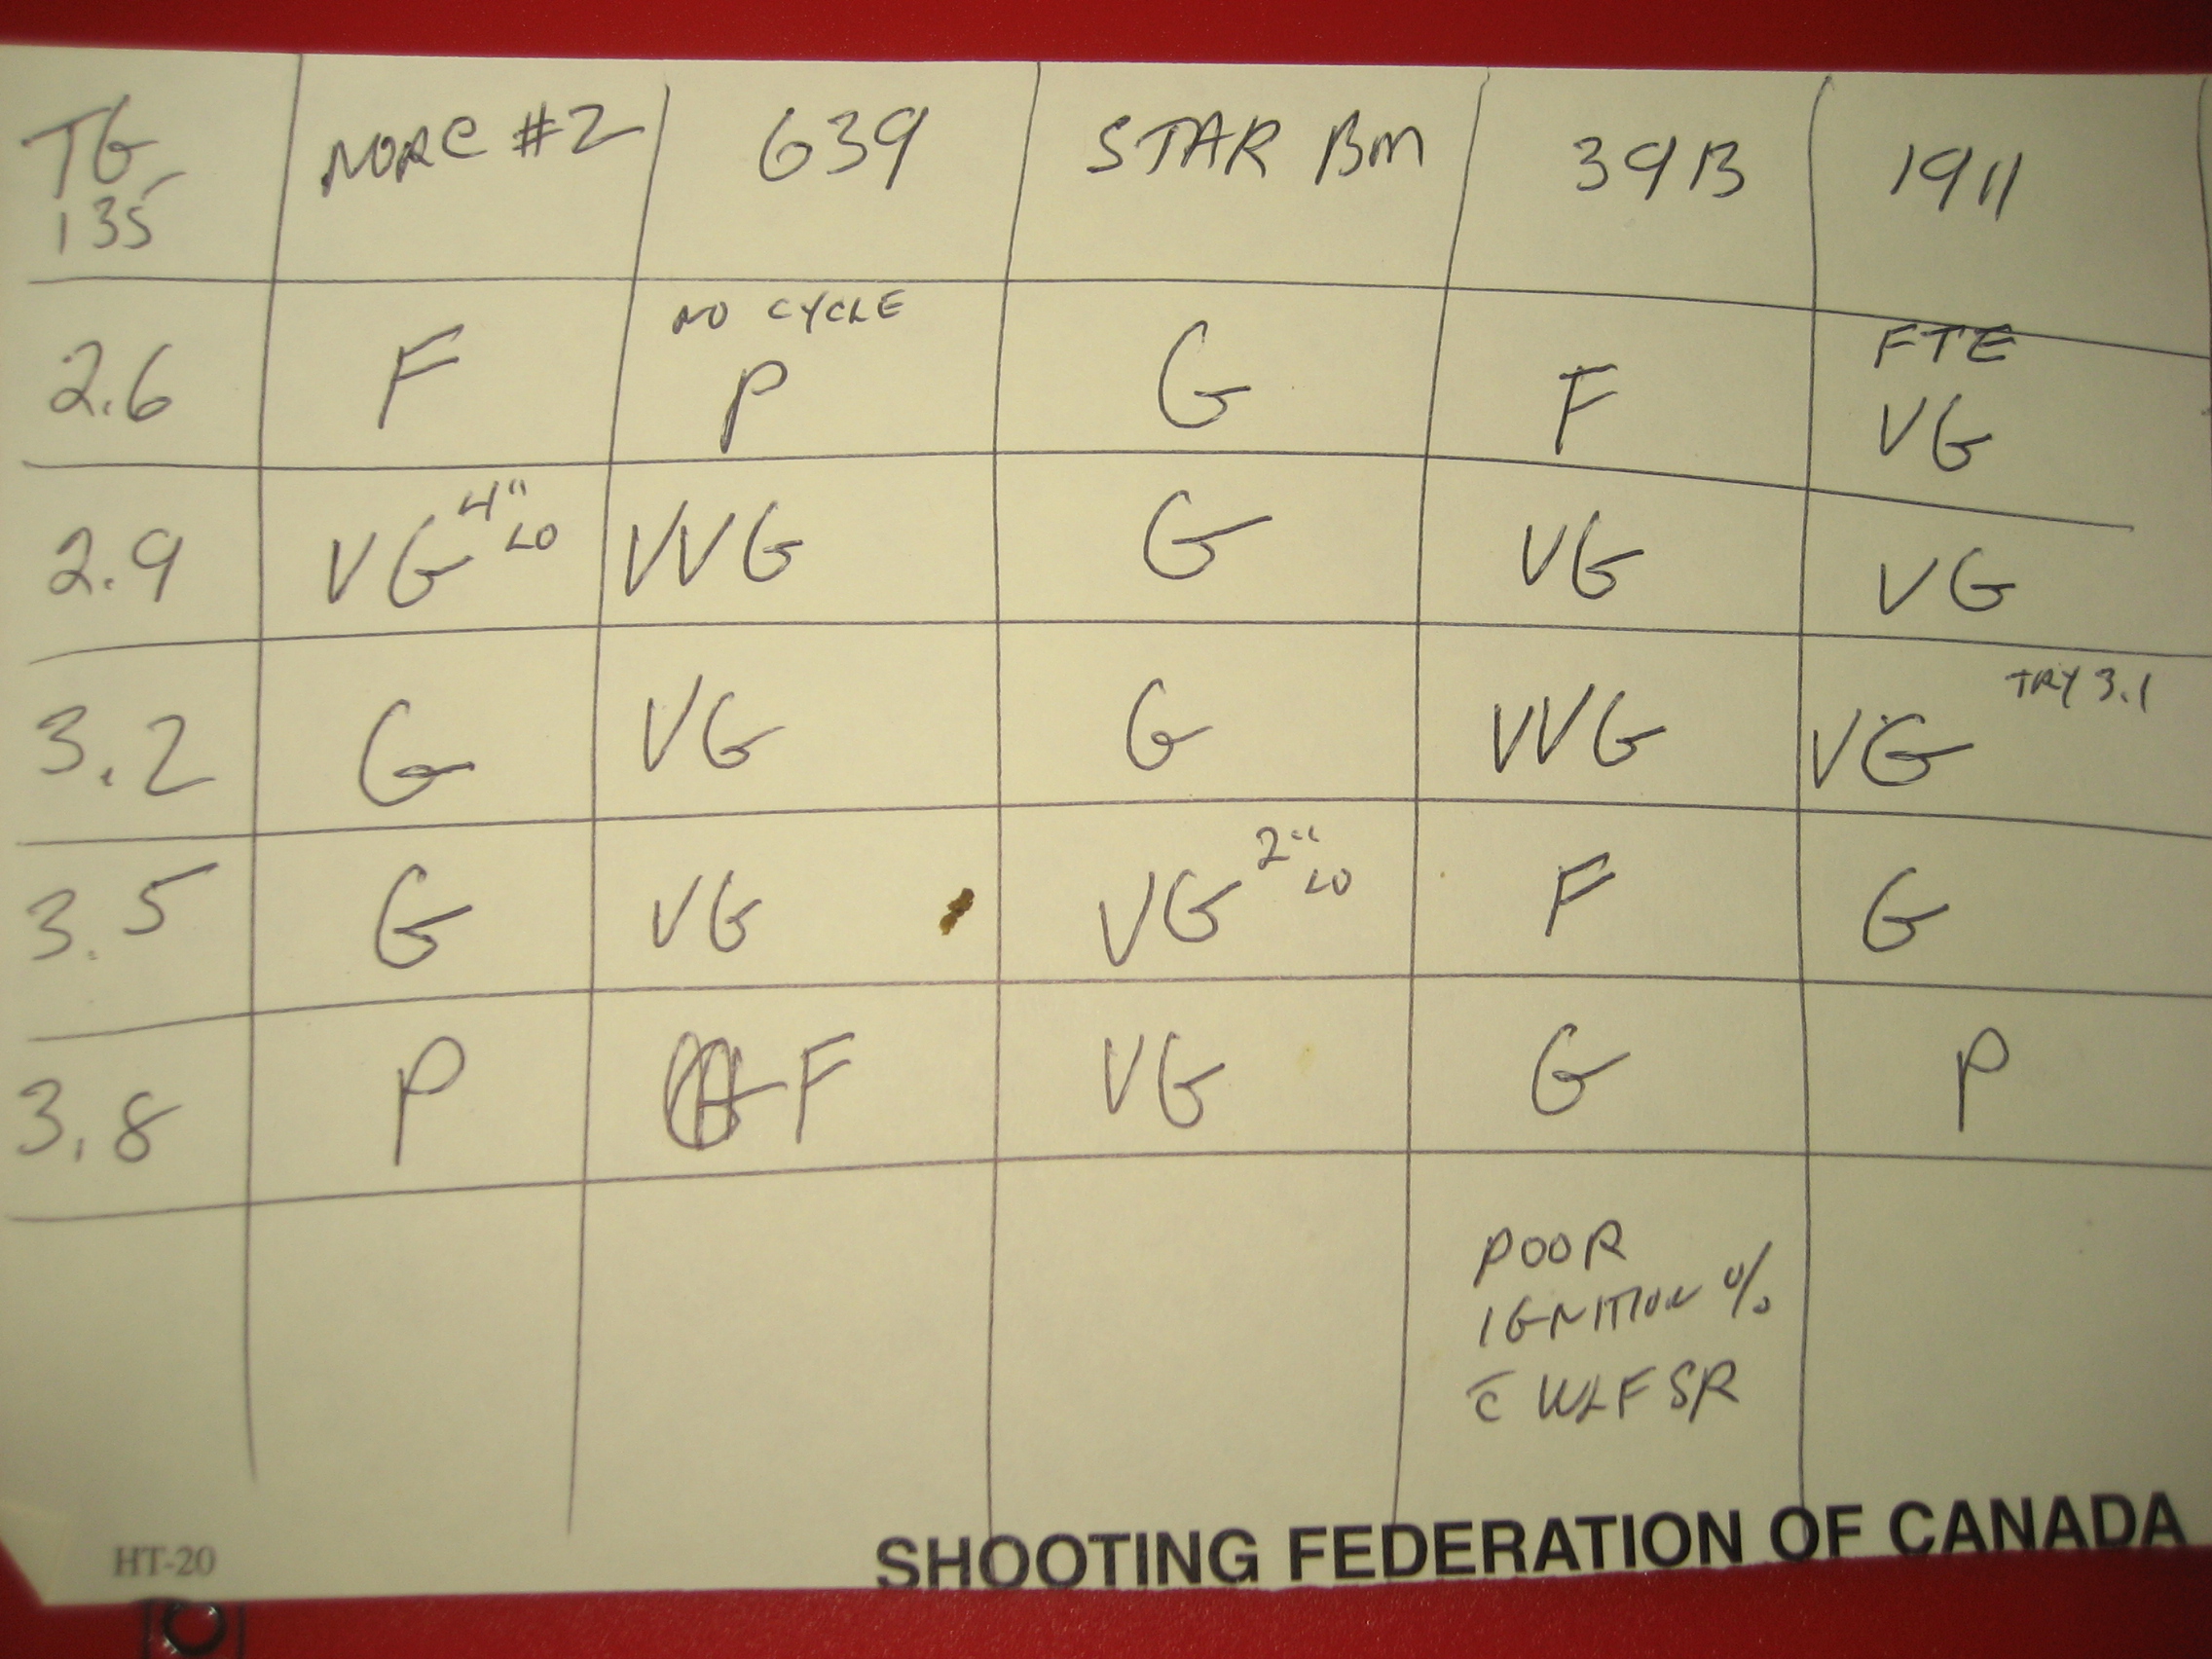 TG 135 NORC #2 639 STAR BM 39B 1911
2.6 F NO CYCLE P G F FTE VG
2.9 VG 4" LO VVG G VG VG
3.2 G VG G VVG VG TRY 3.1
3.5 G VG VG 2" LO F G
3.8 P F VG G P
POOR
IGNITION %
c̄ WLF SR
HT-20
SHOOTING FEDERATION OF CANADA